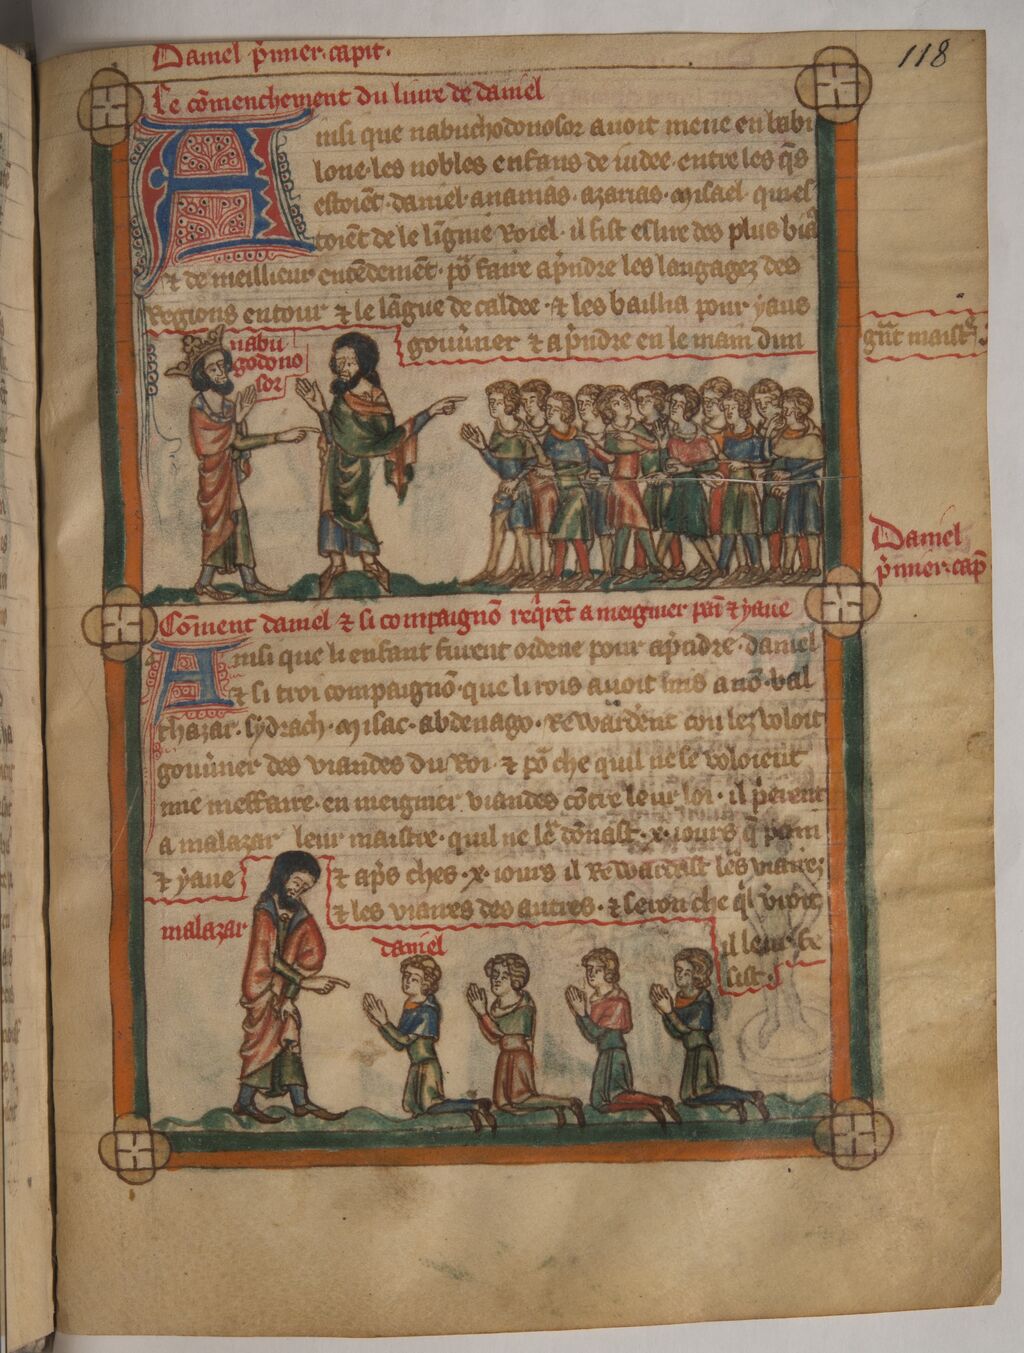 118
Daniel p̄mier. capit.
Le cōmenchement du liure de daniel
Ainsi que nabuchodonosor auoit mene en babi
lone. les nobles enfans de iudee. entre les q̄s
estoiēt. daniel. ananias. azarias. misael. qui es
toiēt de le lignie Roiel. il fist eslire des plus
⁊ de meillieur entēdement. po᷑ faire ap̄ndre les langagez des
Regions entour ⁊ le lāgue de caldee. ⁊ les bailla pour yaus
gouu᷑ner ⁊ ap̄ndre en le main dun
gn̄t maist᷑.
nabu
godono
sor
Daniel
p̄mier. cap̄
Cōment daniel ⁊ si compaignō req̄rēt a meignier pai ⁊ yaue
Ainsi que li enfant furent ordene pour ap̄ndre. daniel
⁊ si troi compaignō. que li rois auoit mis a nō. bal
thazar. sydrach. misac. abdenago. Rewarderent con lez voloit
gouu᷑ner des viandes du Roi. ⁊ po᷑ che quil ne se voloient
mie meffaire. en meignier viandes cōtre leur loi. il p̄ierent
a malazar leur maistre. quil ne le᷑ dōnast. x. iours q̄ pain
⁊ yaue
⁊ ap̄s ches. x. iours il Rewardast le᷑s viairez
⁊ les viaires des autres. ⁊ selon che q̄l
il leur fe
sist.
malazar
daniel